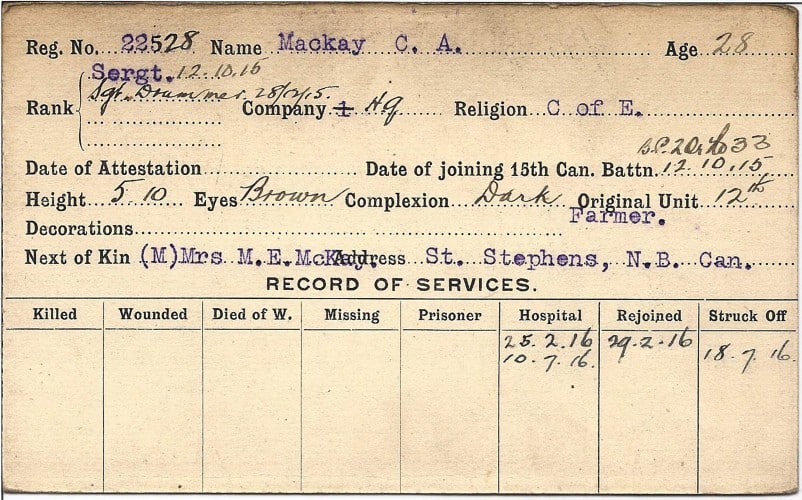 Reg. No. 22528 Name Mackay C. A. Age 28
Sergt. 12.10.15
Rank Sgt. Drummer 28/2/15. Company 1 HQ Religion C of E.
33
Date of Attestation Date of joining 15th Can. Battn. 12.10.15
Height 5.10 Eyes Brown Complexion Dark Original Unit 12th
Decorations Farmer.
Next of Kin (M)Mrs M.E.McKay. Address St. Stephens, N.B. Can.
RECORD OF SERVICES.
Killed Wounded Died of W. Missing Prisoner Hospital Rejoined Struck Off
25.2.16 29.2.16
10.7.16. 18.7.16.